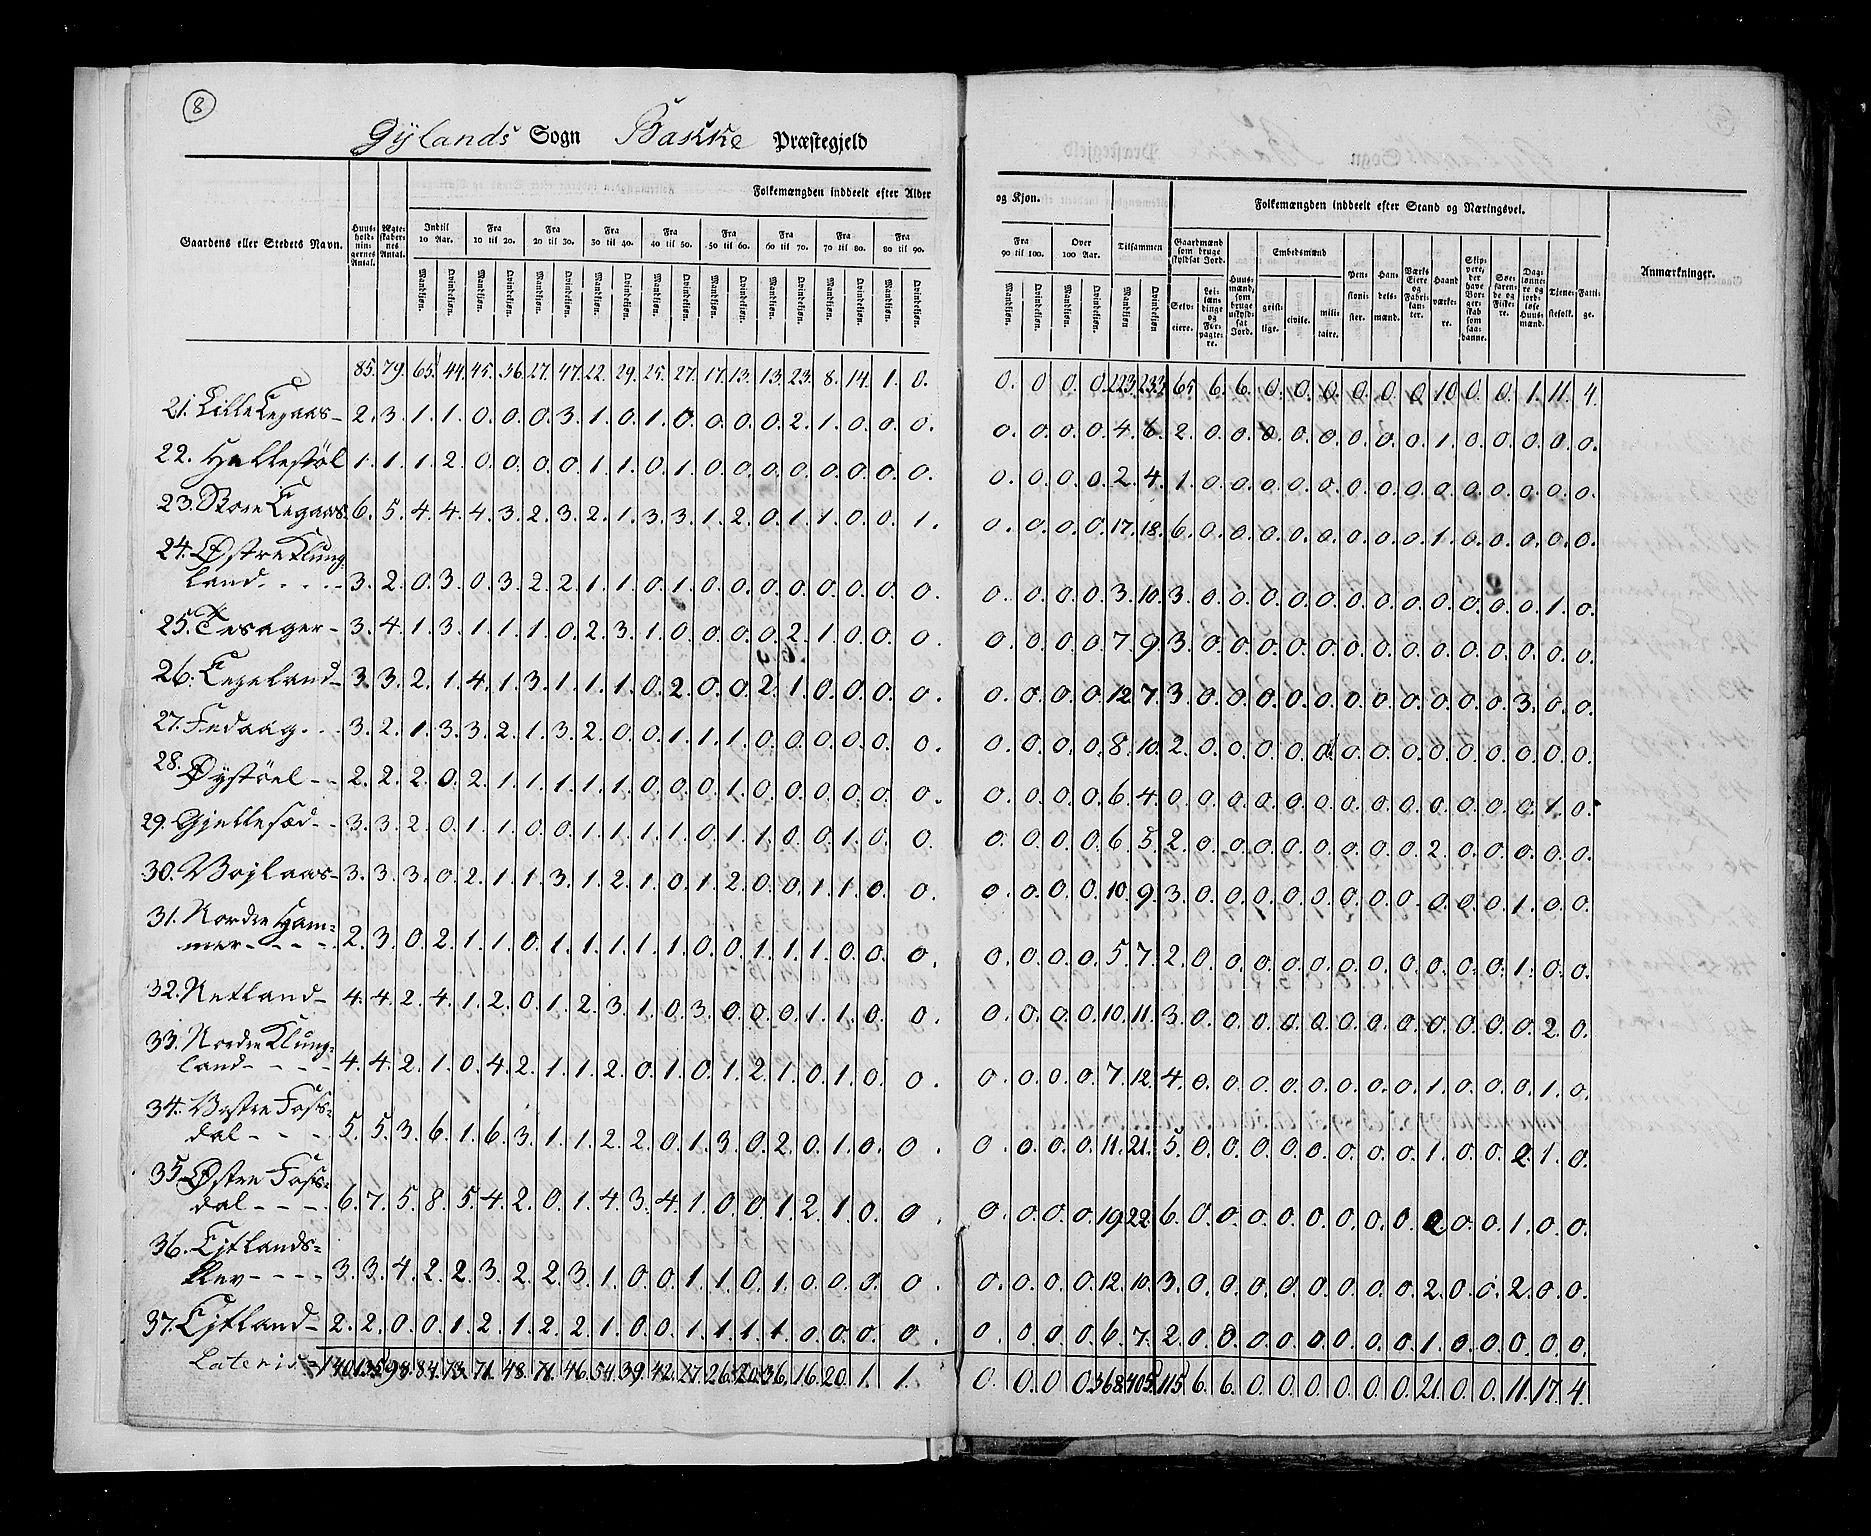 8
Gÿlands Sogn Bakke Præstegjeld
Folkemængden inddeelt efter Alder og Kjøn.
Folkemængden inddeelt efter Stand og Næringsvei.
Gaardens eller Stedets Navn.
Huusholdningernes Antal.
Ægteskabernes Antal.
Indtil 10 Aar.
Fra 10 til 20.
Fra 20 til 30.
Fra 30 til 40.
Fra 40 til 50.
Fra 50 til 60.
Fra 60 til 70.
Fra 70 til 80.
Fra 80 til 90.
Fra 90 til 100.
Over 100 Aar.
Tilsammen
Mandkjøn. Qvindekjøn.
Gaardmænd som bruge skyldsat Jord.
Selveiere.
Leilændinge og Forpagtere.
Huusmænd, som bruge uskyldsat Jord.
Embedsmænd
geistlige. civile. militaire.
Pensionister.
Handelsmænd.
Værks Eiere og Fabrikanter.
Haandværkere.
Skippere, der have Borgerskab som saadanne.
Søefarende og Fiskere.
Daglønnere og jordløse Huusmænd.
Tjenestefolk.
Fattige.
Anmærkninger.
85. 79. 65. 44. 45. 36. 27. 47. 22. 29. 25. 27. 17. 13. 13. 23. 8. 14. 1. 0. 0. 0. 0. 0. 223. 233. 65 6. 6. 0. 0. 0. 0. 0. 0. 10 0. 0. 1. 11. 4.
21. Lille Legaas 2. 3. 1. 1. 0. 0. 0. 3. 1. 0. 1. 0. 0. 0. 0. 2. 1. 0. 0. 0. 0. 0. 0. 0. 4. 6. 2. 0. 0. 0. 0. 0. 0. 0. 0. 1. 0. 0. 0. 0. 0.
22. Hellestøl 1. 1. 1. 2. 0. 0. 0. 0. 1. 1. 0. 1. 0. 0. 0. 0. 0. 0. 0. 0. 0. 0. 0. 0. 2. 4. 1. 0. 0. 0. 0. 0. 0. 0. 0. 0. 0. 0. 0. 0. 0.
23. Store Legaas 6. 5. 4. 4. 4. 3. 2. 3. 2. 1. 3. 3. 1. 2. 0. 1. 1. 0. 0. 1. 0. 0. 0. 0. 17. 18. 6. 0. 0. 0. 0. 0. 0. 0. 0. 1. 0. 0. 0. 0. 0.
24. Østre Klung
land 3. 2. 0. 3. 0. 3. 2. 2. 1. 1. 0. 1. 0. 0. 0. 0. 0. 0. 0. 0. 0. 0. 0. 0. 3. 10. 3. 0. 0. 0. 0. 0. 0. 0. 0. 0. 0. 0. 0. 1. 0.
25. Tesager 3. 4. 1. 3. 1. 1. 1. 0. 2. 3. 1. 0. 0. 0. 0. 2. 1. 0. 0. 0. 0. 0. 0. 0. 7. 9. 3. 0. 0. 0. 0. 0. 0. 0. 0. 0. 0. 0. 0. 0. 0.
26. Legeland 3. 3. 2. 1. 4. 1. 3. 1. 1. 1. 0. 2. 0. 0. 2. 1. 0. 0. 0. 0. 0. 0. 0. 0. 12. 7. 3. 0. 0. 0. 0. 0. 0. 0. 0. 0. 0. 0. 3. 0. 0.
27. Fedaag 3. 2. 1. 3. 3. 2. 1. 3. 2. 0. 0. 1. 1. 1. 0. 0. 0. 0. 0. 0. 0. 0. 0. 0. 8. 10. 2. 0. 0. 0. 0. 0. 0. 0. 0. 0. 0. 0. 0. 0. 0.
28. Øystöel 2. 2. 2. 0. 2. 1. 1. 1. 1. 1. 0. 0. 0. 1. 0. 0. 0. 0. 0. 0. 0. 0. 0. 0. 6. 4. 0. 0. 0. 0. 0. 0. 0. 0. 0. 0. 0. 0. 0. 1. 0.
29. Gjellesæd 3. 3. 2. 0. 1. 1. 0. 0. 1. 1. 1. 1. 0. 1. 1. 0. 0. 1. 0. 0. 0. 0. 0. 0. 6. 5. 2. 0. 0. 0. 0. 0. 0. 0. 0. 2. 0. 0. 0. 0. 0.
30. Bojlaas 3. 3. 3. 0. 2. 1. 1. 3. 1. 2. 1. 0. 1. 2. 0. 0. 1. 1. 0. 0. 0. 0. 0. 0. 10. 9. 3. 0. 0. 0. 0. 0. 0. 0. 0. 0. 0. 0. 1. 0. 0.
31. Nordre Ham=
mer 2. 3. 0. 2. 1. 1. 0. 1. 1. 1. 1. 1. 0. 0. 1. 1. 1. 0. 0. 0. 0. 0. 0. 0. 5. 7. 2. 0. 0. 0. 0. 0. 0. 0. 0. 0. 0. 0. 1. 0. 0.
32. Netland 4. 4. 2. 4. 1. 2. 0. 1. 2. 3. 1. 0. 3. 0. 0. 0. 1. 1. 0. 0. 0. 0. 0. 0. 10. 11. 3. 0. 0. 0. 0. 0. 0. 0. 0. 0. 0. 0. 0. 2. 0.
33. Nordre Klung=
land 4. 4. 2. 1. 0. 4. 2. 1. 1. 2. 0. 1. 0. 1. 2. 1. 0. 1. 0. 0. 0. 0. 0. 0. 7. 12. 4. 0. 0. 0. 0. 0. 0. 0. 0. 1. 0. 0. 0. 1. 0.
34. Vestre Foss=
dal 5. 5. 3. 6. 1. 6. 3. 1. 1. 2. 2. 0. 1. 3. 0. 2. 0. 1. 0. 0. 0. 0. 0. 0. 11. 21. 5. 0. 0. 0. 0. 0. 0. 0. 0. 1. 0. 0. 2. 1. 0.
35. Østre Foss=
dal 6. 7. 5. 8. 5. 4. 2. 0. 1. 4. 3. 4. 1. 0. 0. 1. 2. 1. 0. 0. 0. 0. 0. 0. 19. 22. 6. 0. 0. 0. 0. 0. 0. 0. 0. 2. 0. 0. 1. 0. 0.
36. Eftlands=
klev 3. 3. 4. 2. 2. 3. 2. 2. 3. 1. 0. 0. 1. 1. 0. 1. 0. 0. 0. 0. 0. 0. 0. 0. 12. 10. 3. 0. 0. 0. 0. 0. 0. 0. 0. 2. 0. 0. 2. 0. 0.
37. Eftland 2. 2. 0. 0. 1. 2. 1. 2. 2. 1. 0. 0. 1. 1. 1. 1. 0. 0. 0. 0. 0. 0. 0. 0. 6. 7. 2. 0. 0. 0. 0. 0. 0. 0. 0. 1. 0. 0. 0. 0. 0.
Lateris = 140. 135. 98. 84. 73. 71. 48. 71. 46. 54. 39. 42. 27. 26. 20. 36. 16. 20. 1. 1. 0. 0. 0. 0. 368. 405. 115. 6. 6. 0. 0. 0. 0. 0. 0. 21. 0. 0. 11. 17. 4.